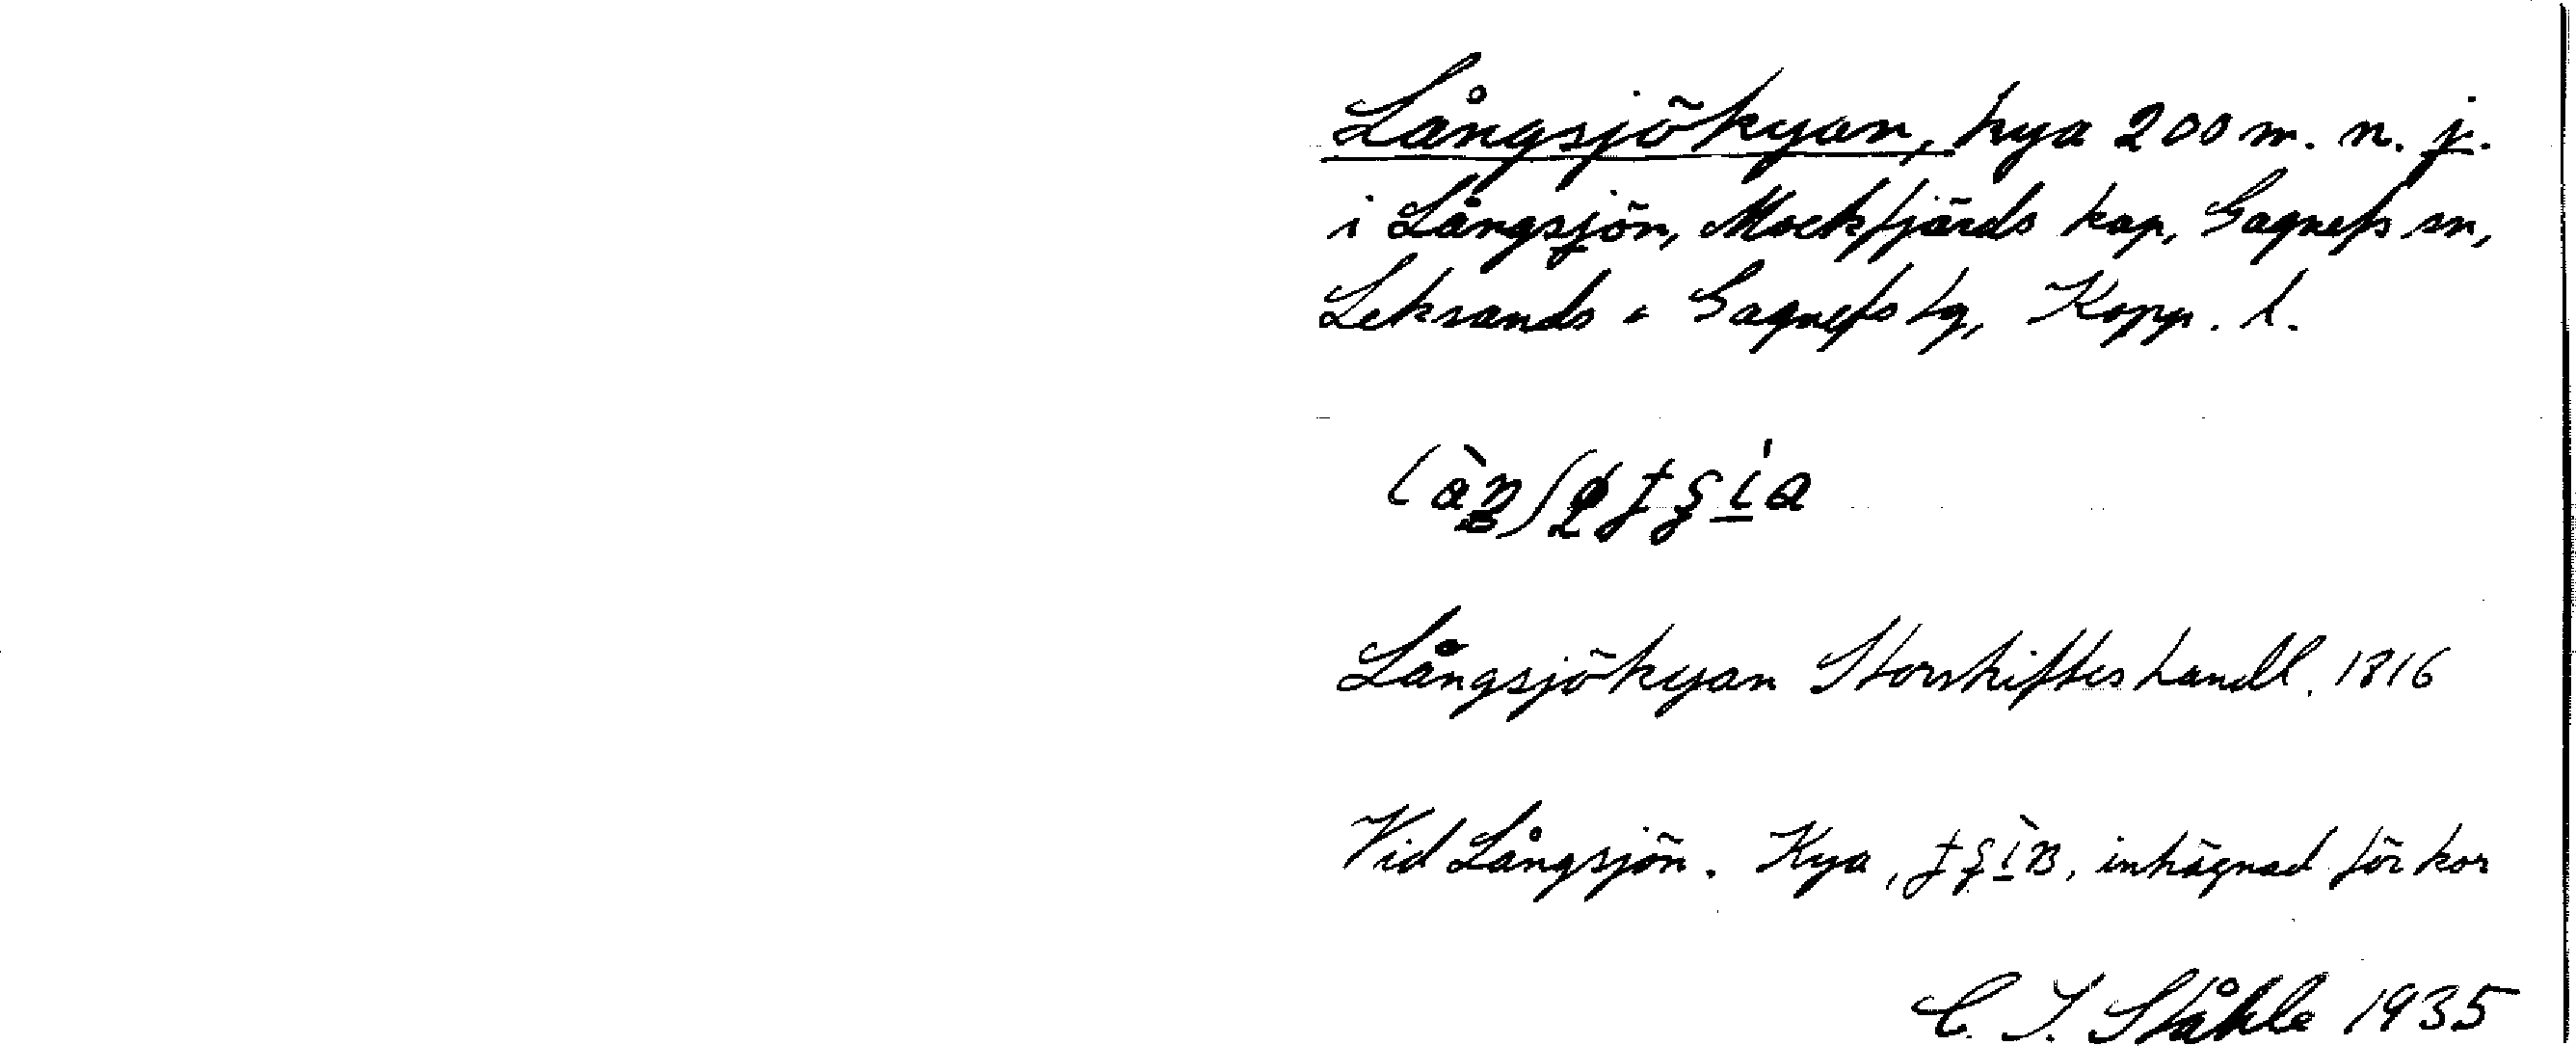 Långsjökyan, kya 200 m. n. j.
i Långsjön, Mockfjärds kap, Gagnefs sn,
Leksands o Gagnefs tg, Kopp. l.
Långsjökyan Storskifteshandl. 1816
Vid Långsjön. Kya, inhägnad för kor
C. I. Ståhle 1935